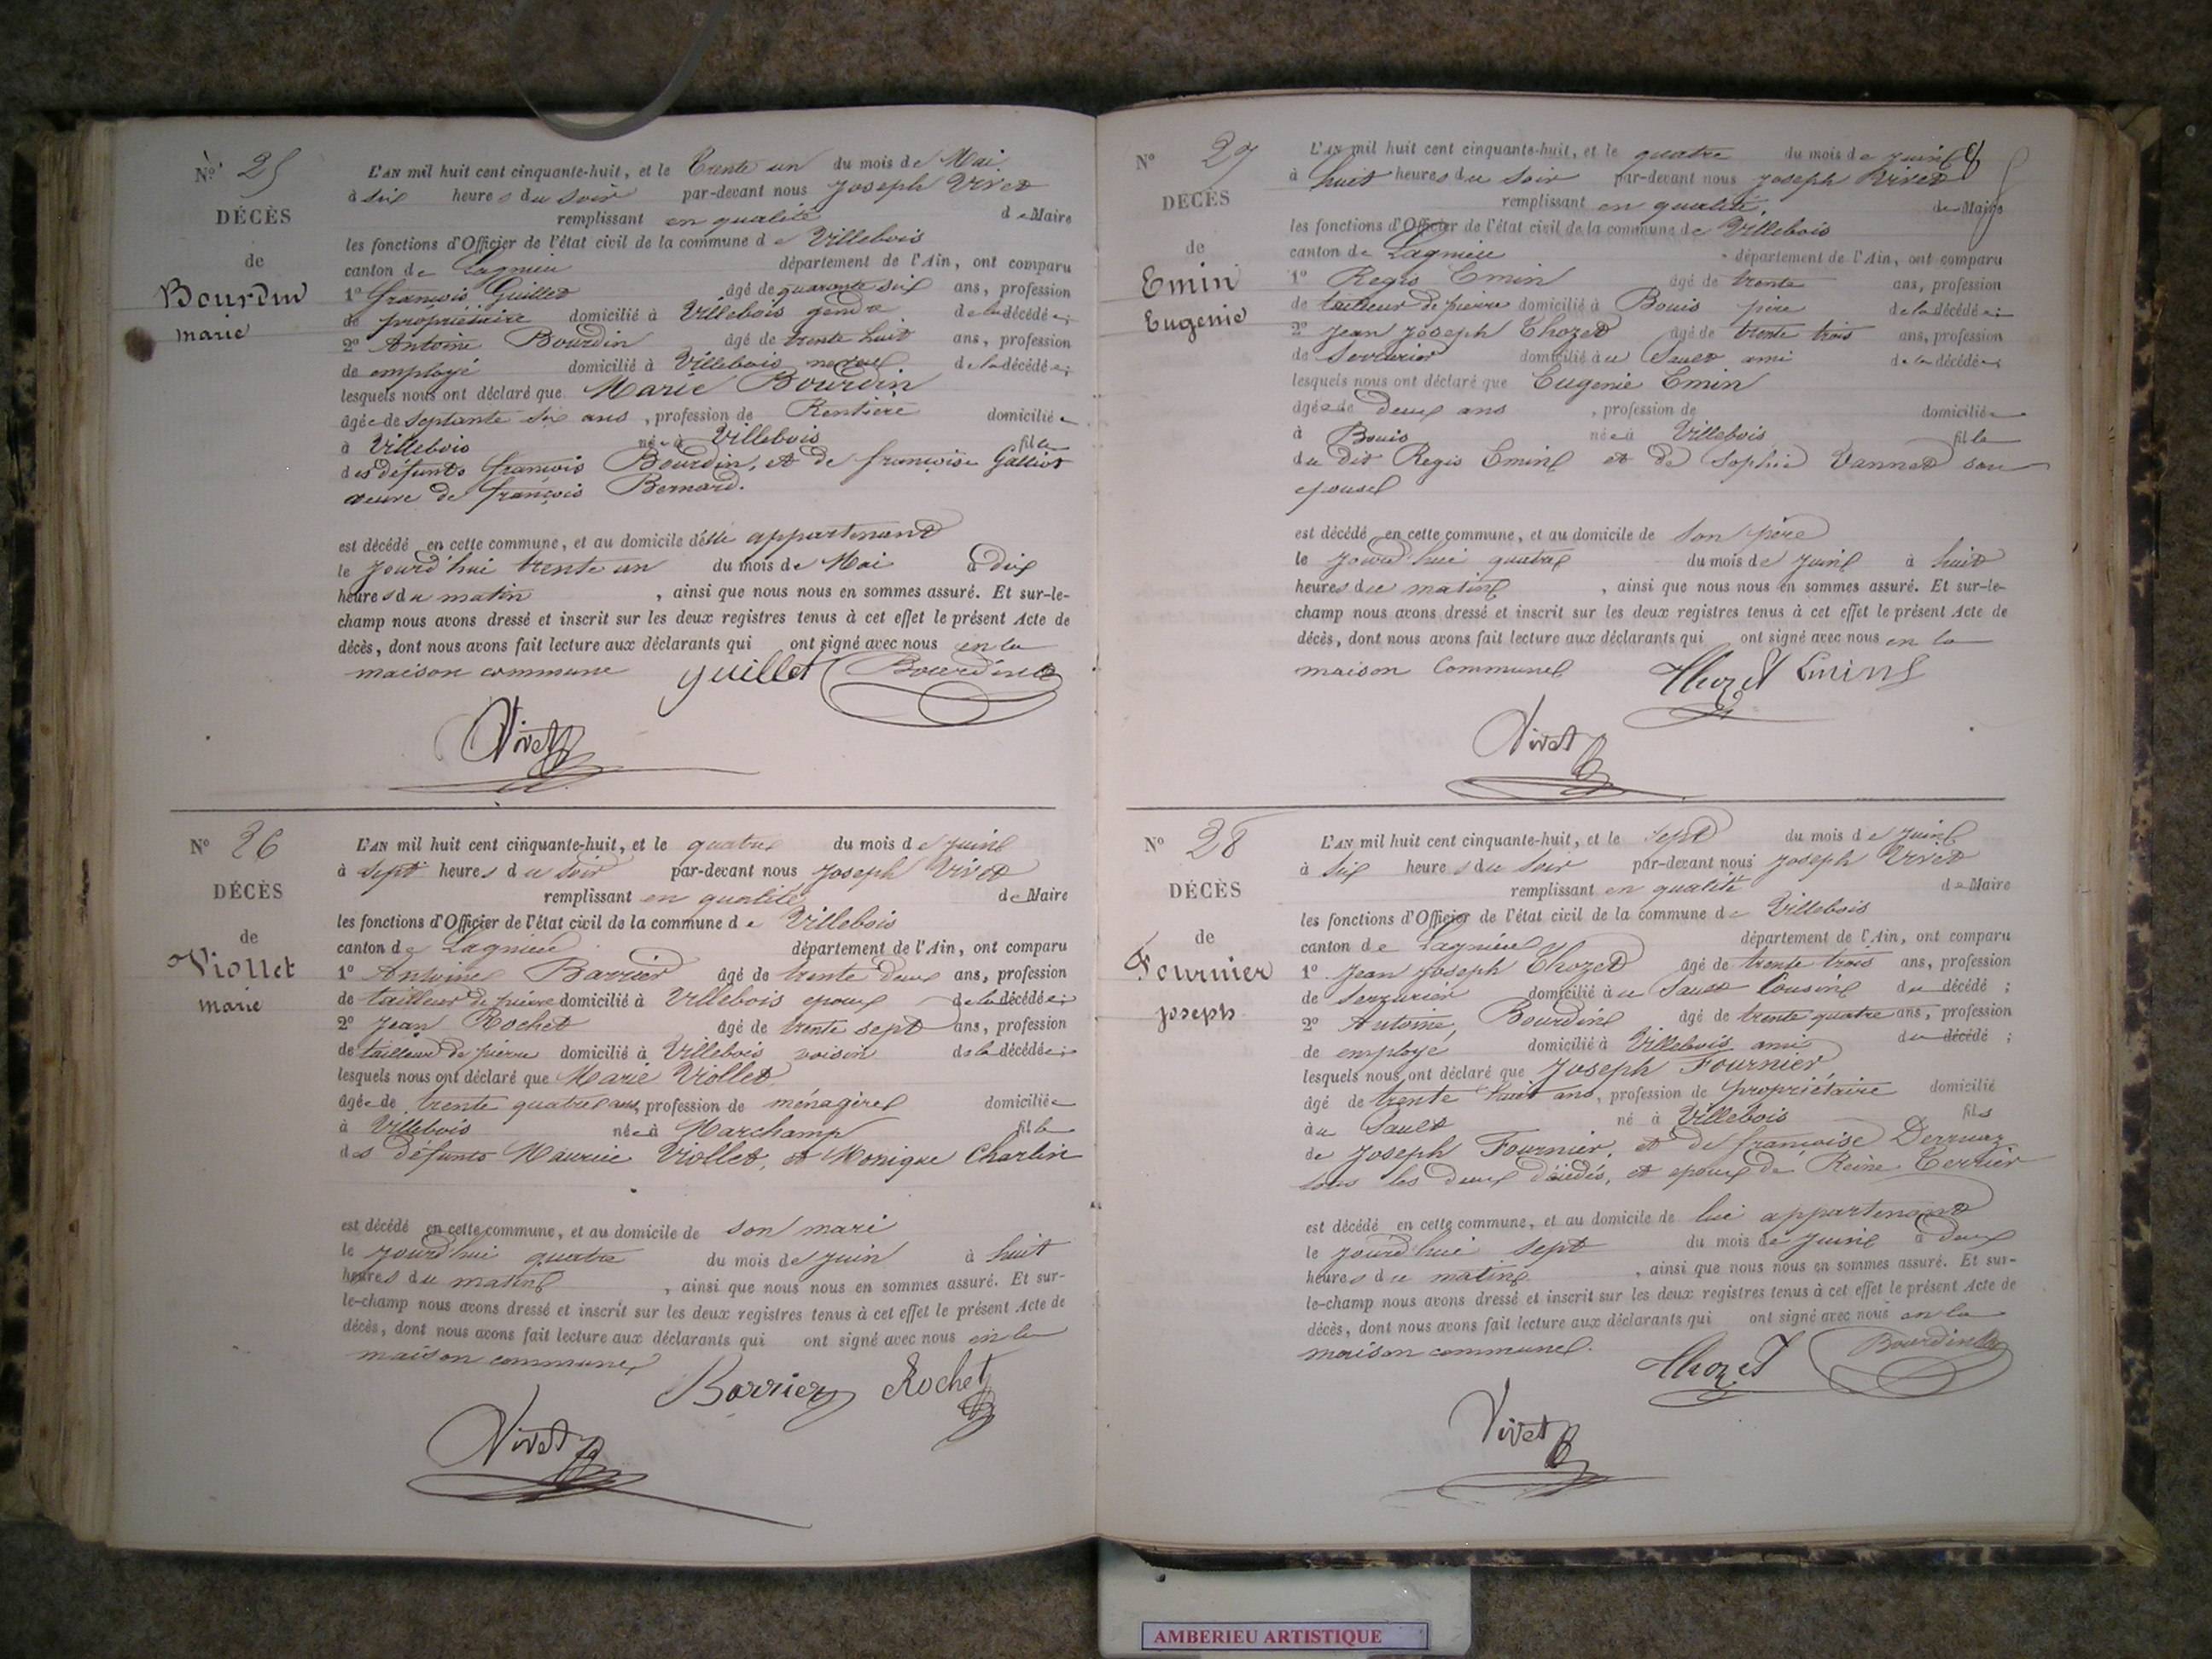 N° 25
DÉCÈS
de
Bourdin
marie
L'AN mil huit cent cinquante-huit, et le Trente un du mois de Mai
à six heures du soir par-devant nous Joseph Vivet
remplissant en qualité de Maire
les fonctions d'Officier de l'état civil de la commune de Villebois
canton de Lagnieu département de l'Ain, ont comparu
1° François Guillet âgé de quarante six ans, profession
de propriétaire domicilié à Villebois gendre de la décédée;
2° Antoine Bourdin âgé de trente huit ans, profession
de employé domicilié à Villebois neveu de la décédée;
lesquels nous ont déclaré que Marie Bourdin
âgée de septante six ans, profession de Rentière domiciliée
à Villebois née à Villebois fille
des défunts françois Bourdin, et de françoise Galliot
veuve de françois Bernard.
est décédé en cette commune, et au domicile d'elle appartenant
le jourd'hui trente un du mois de Mai à dix
heures du matin, ainsi que nous nous en sommes assuré. Et sur-le-
champ nous avons dressé et inscrit sur les deux registres tenus à cet effet le présent Acte de
décès, dont nous avons fait lecture aux déclarants qui ont signé avec nous en la
maison commune guillet Bourdin
Vivet
N° 26
DÉCÈS
de
Viollet
marie
L'AN mil huit cent cinquante-huit, et le quatre du mois de juin
à sept heures du soir par-devant nous Joseph Vivet
remplissant en qualité de Maire
les fonctions d'Officier de l'état civil de la commune de Villebois
canton de Lagnieu département de l'Ain, ont comparu
1° Antoine Barrier âgé de trente deux ans, profession
de tailleur de pierre domicilié à Villebois epoux de la décédée;
2° Jean Rochet âgé de trente sept ans, profession
de tailleur de pierre domicilié à Villebois voisin de la décédée;
lesquels nous ont déclaré que Marie Viollet
âgée de trente quatre ans, profession de ménagère domiciliée
à Villebois née à Marchamp fille
des défunts Maurice Viollet, et Monique Charlin
est décédé en cette commune, et au domicile de son mari
le jourd'hui quatre du mois de juin à huit
heures du matin, ainsi que nous nous en sommes assuré. Et sur-
le-champ nous avons dressé et inscrit sur les deux registres tenus à cet effet le présent Acte de
décès, dont nous avons fait lecture aux déclarants qui ont signé avec nous en la
maison commune
Barrier Rochet
Vivet
N° 27
DÉCÈS
de
Emin
Eugenie
L'AN mil huit cent cinquante-huit, et le quatre du mois de juin
à huit heures du soir par-devant nous Joseph Vivet
remplissant en qualité, de Maire
les fonctions d'Officier de l'état civil de la commune de Villebois
canton de Lagnieu département de l'Ain, ont comparu
1° Regis Emin âgé de trente ans, profession
de tailleur de pierre domicilié à Bouis père de la décédée;
2° Jean Joseph Thozet âgé de trente trois ans, profession
de Serrurier domicilié au Sault ami de la décédée;
lesquels nous ont déclaré que Eugenie Emin
âgée de deux ans, profession de domiciliée
à Bouis née à Villebois fille
du dit Regis Emin et de Sophie Vannet son
epouse
est décédé en cette commune, et au domicile de son père
le jourd'hui quatre du mois de juin à huit
heures du matin, ainsi que nous nous en sommes assuré. Et sur-le-
champ nous avons dressé et inscrit sur les deux registres tenus à cet effet le présent Acte de
décès, dont nous avons fait lecture aux déclarants qui ont signé avec nous en la
maison Commune Thozet Emin
Vivet
N° 28
DÉCÈS
de
Fournier
joseph
L'AN mil huit cent cinquante-huit, et le sept du mois de juin
à six heures du soir par-devant nous Joseph Vivet
remplissant en qualité de Maire
les fonctions d'Officier de l'état civil de la commune de Villebois
canton de Lagnieu département de l'Ain, ont comparu
1° Jean Joseph Thozet âgé de trente trois ans, profession
de Serrurier domicilié au Sault Cousin du décédé;
2° Antoine, Bourdin âgé de trente quatre ans, profession
de employé domicilié à Villebois ami du décédé;
lesquels nous ont déclaré que Joseph Fournier
âgé de trente huit ans, profession de propriétaire domicilié
au Sault né à Villebois fils
de Joseph Fournier, et de françoise Derruaz
tous les deux décédés, et epoux de Reine Terrier
est décédé en cette commune, et au domicile de lui appartenant
le jourd'hui sept du mois de juin à deux
heures du matin, ainsi que nous nous en sommes assuré. Et sur-
le-champ nous avons dressé et inscrit sur les deux registres tenus à cet effet le présent Acte de
décès, dont nous avons fait lecture aux déclarants qui ont signé avec nous en la
maison commune. Thozet Bourdin
Vivet
AMBERIEU ARTISTIQUE